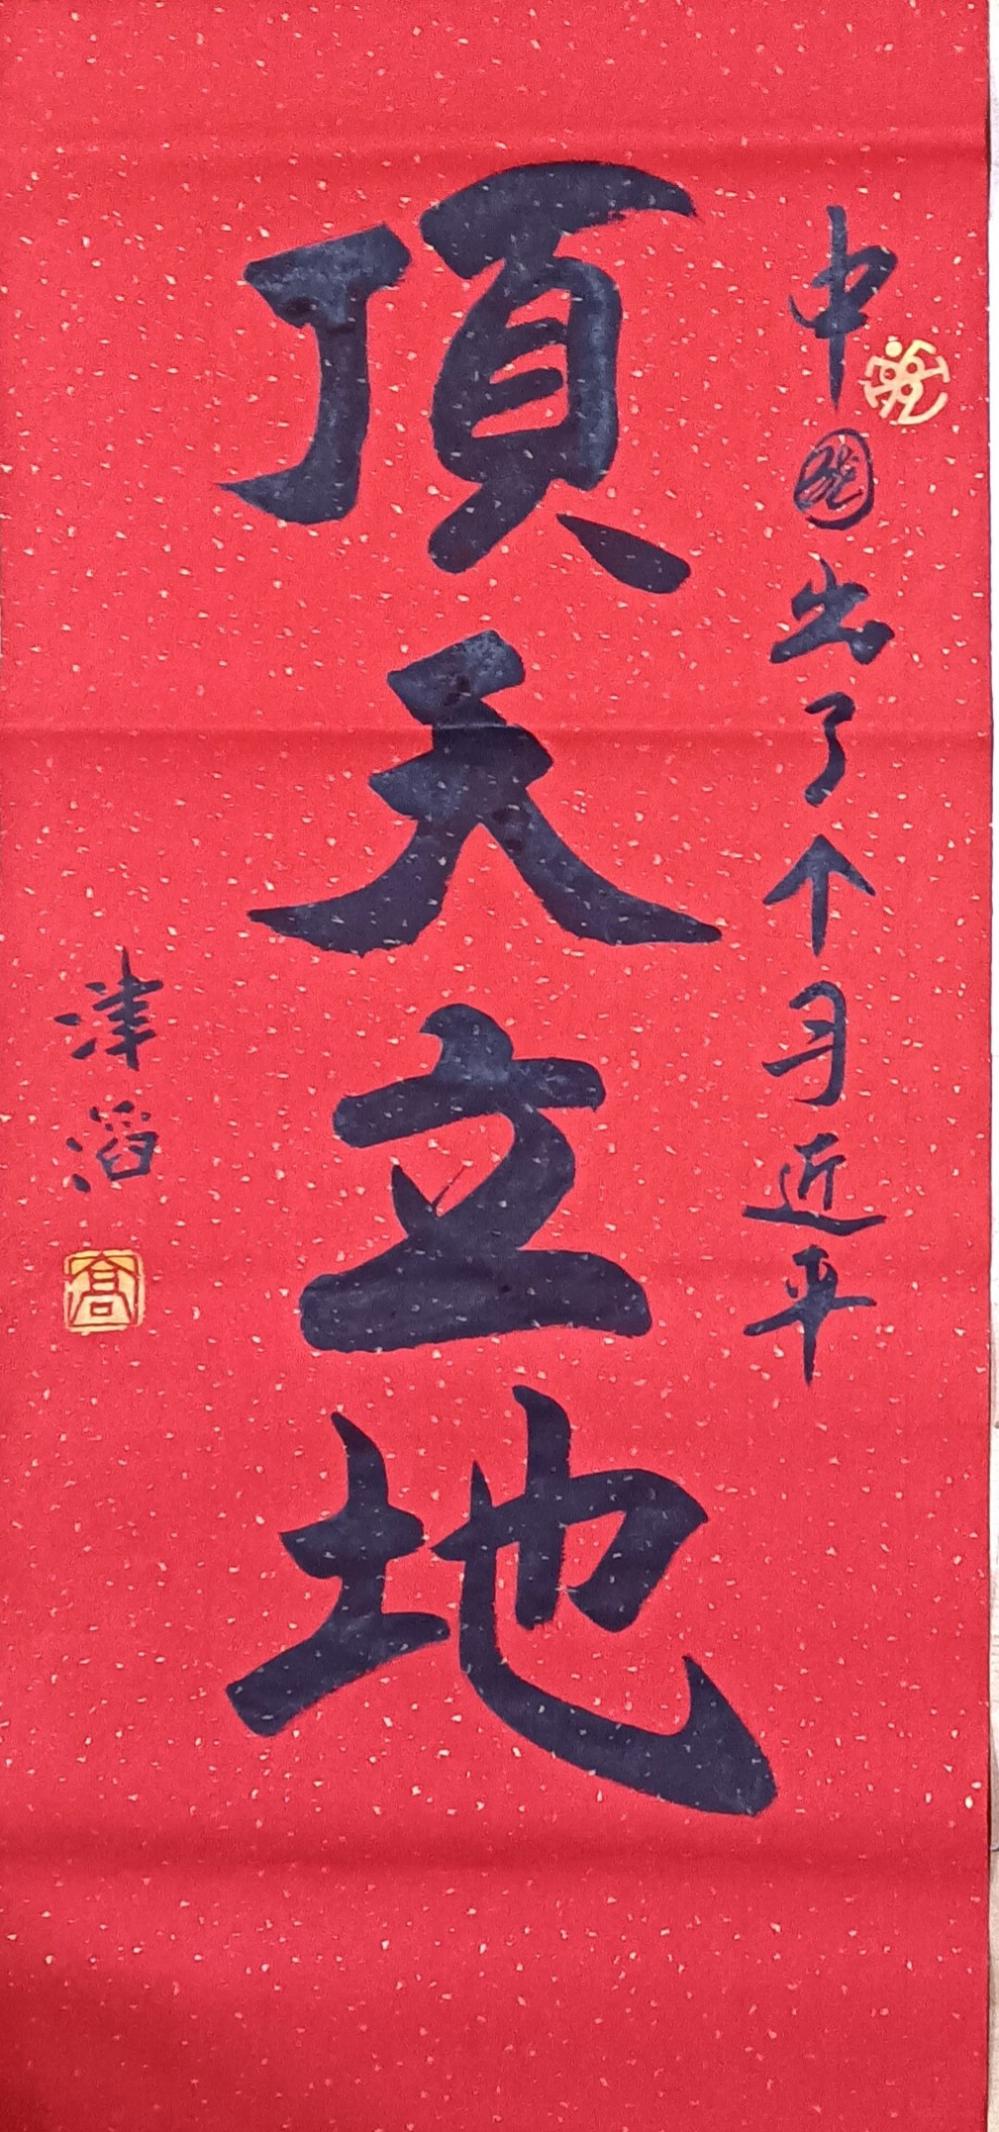 中國出了个习近平
頂天立地
津滔
高